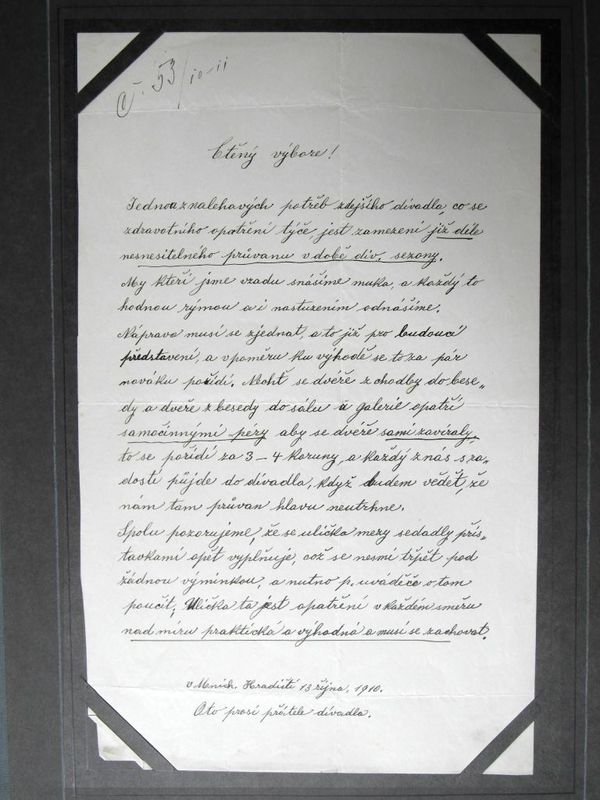 č. 53/10-11
Ctěný výbore!
Jednou z nalehavých potřeb zdejšího divadla, co se
zdravotního opatření týče, jest zamezení již déle
nesnesitelného průvanu v době div. sezony.
My kteří jsme vzadu snášíme muka, a každý to
hodnou rýmou a i nastuzením odnášíme.
Náprava musí se zjednat, a to již pro budoucí
představení, a v poměru ku výhodě se to za pár
nováku pořídí. Nechť se dvéře z chodby do bese„
dy a dveře z besedy do sálu a galerie opatří
samočinnými péry aby se dvéře sami zavíraly,
to se pořídí za 3-4 koruny, a každý z nás s ra„
dostí půjde do divadla, když budem vědět, že
nám tam průvan hlavu neutrhne.
Spolu pozorujeme, že se ulička mezy sedadly přís„
tavkami opět vyplňuje, což se nesmí trpět pod
žádnou vymínkou, a nutno p. uvaděče o tom
poučit, Ulička ta jest opatření v každém směru
nad míru praktická a výhodná a musí se zachovat.
v Mnich. Hradišti 13 října, 1910.
Oto prosí přátele divadla.